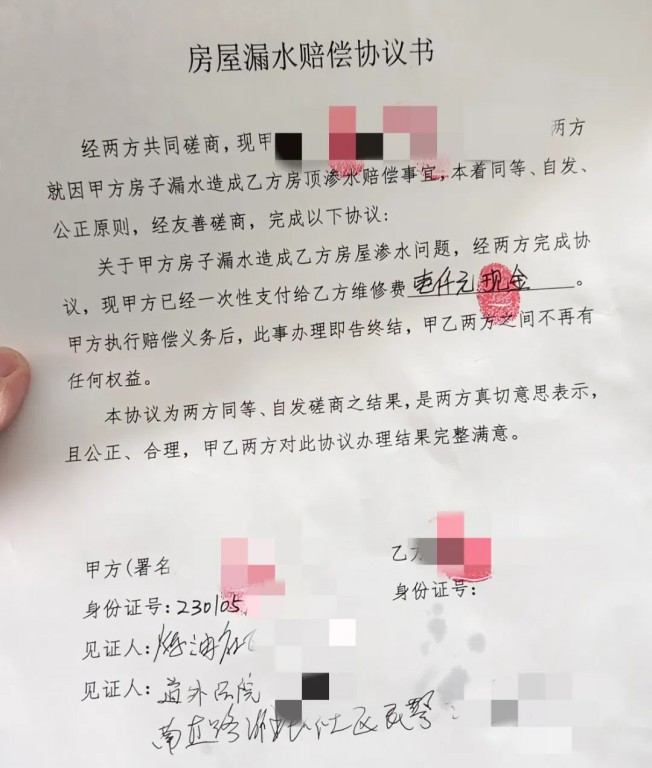 房屋漏水赔偿协议书
经两方共同磋商，现甲 两方
就因甲方房子漏水造成乙方房顶渗水赔偿事宜，本着同等、自发、
公正原则，经友善磋商，完成以下协议：
关于甲方房子漏水造成乙方房屋渗水问题，经两方完成协
议，现甲方已经一次性支付给乙方维修费壹仟元现金。
甲方执行赔偿义务后，此事办理即告终结，甲乙两方之间不再有
任何权益。
本协议为两方同等、自发磋商之结果，是两方真切意思表示，
且公正、合理，甲乙两方对此协议办理结果完整满意。
甲方(署名 乙方
身份证号：230105 身份证号：
见证人：
见证人：道外区院
南直路 社区民警：